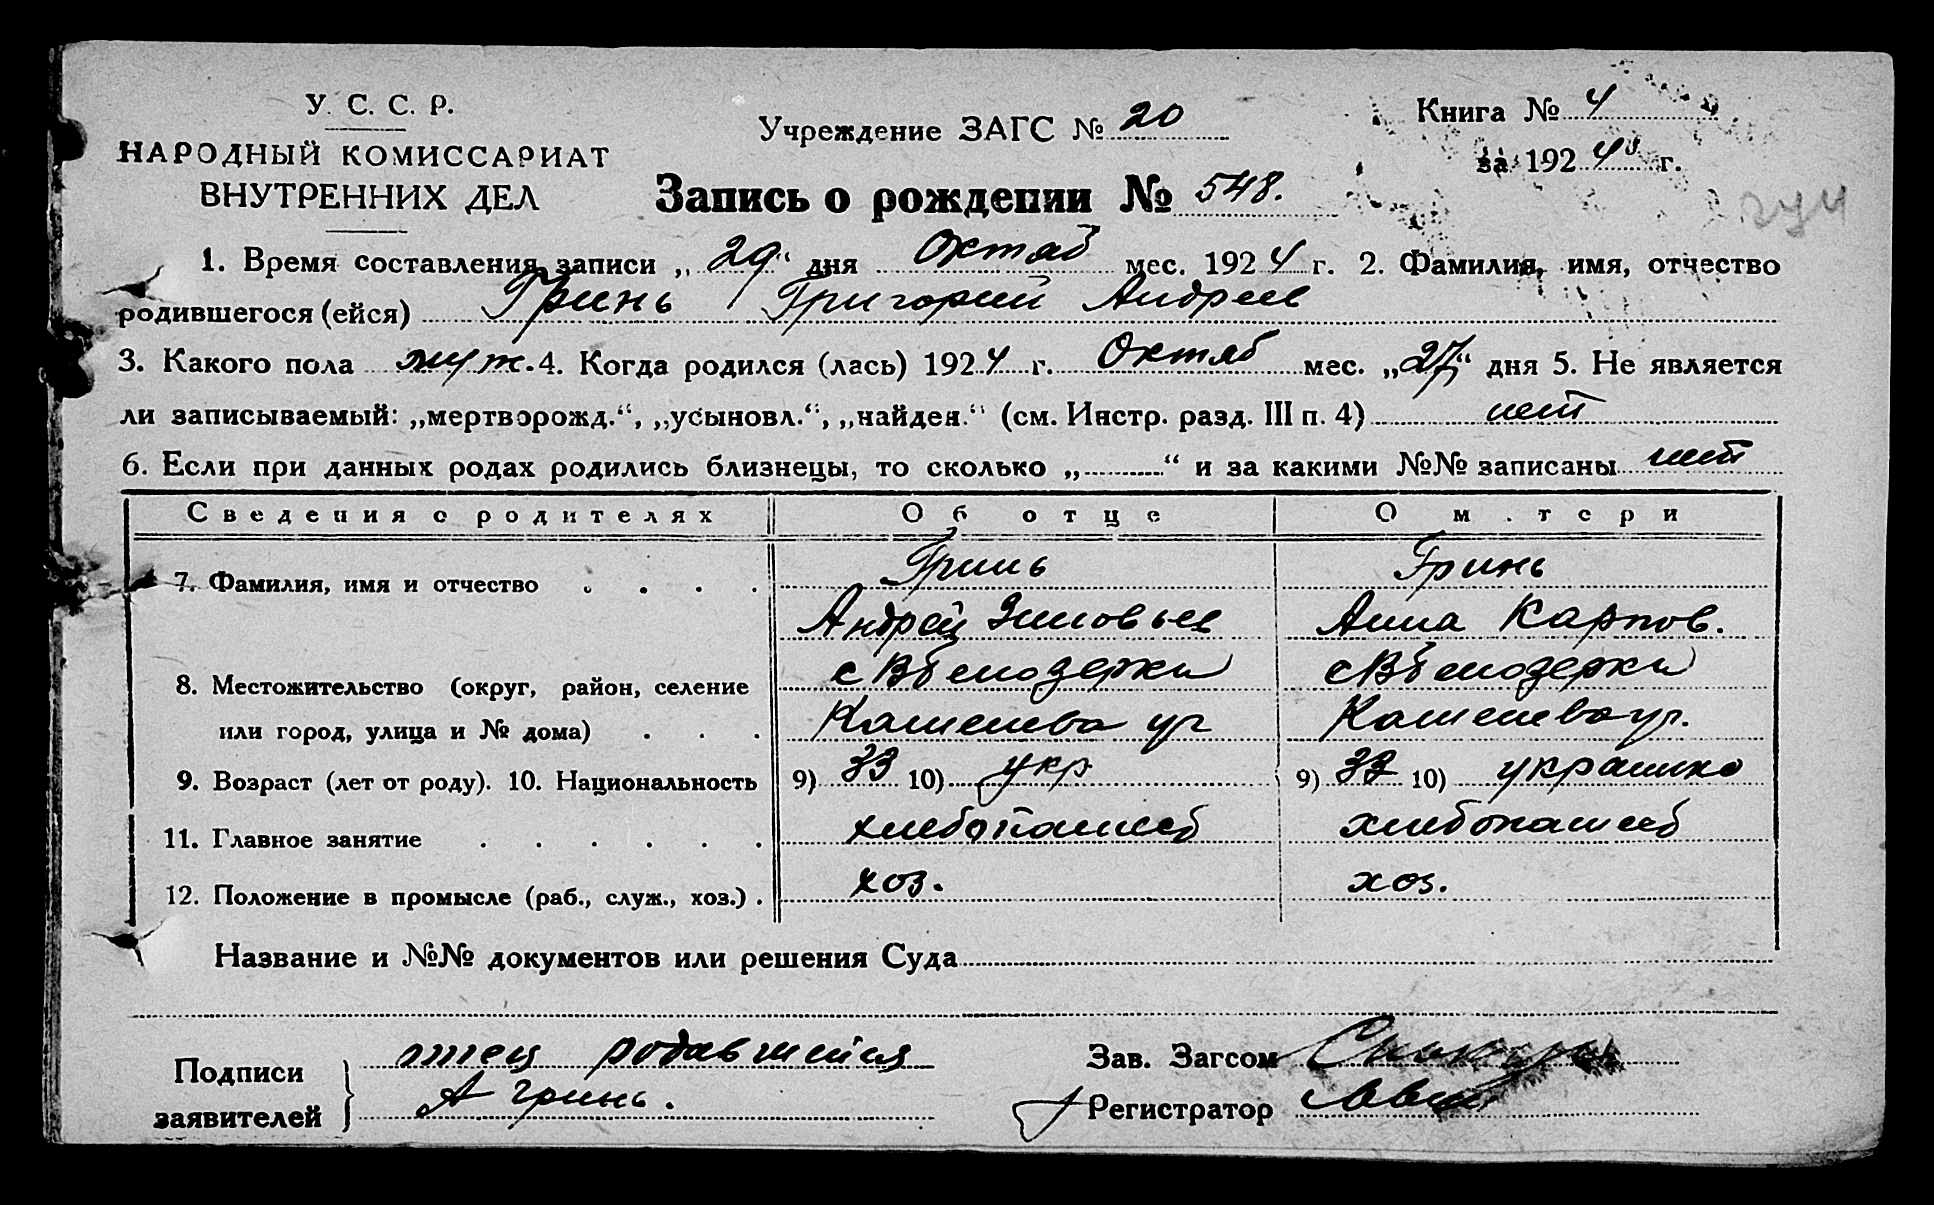 У. С. С. Р.
НАРОДНЫЙ КОМИССАРИАТ
ВНУТРЕННИХ ДЕЛ
Учреждение ЗАГС № 20
Книга № 4
за 1924 г.
Запись о рождении № 548.
1. Время составления записи „29“ дня Октяб мес. 1924 г. 2. Фамилия, имя, отчество
родившегося (ейся) Гринь Григорий Андреев
3. Какого пола муж. 4. Когда родился (лась) 1924 г. Октяб мес. „27“ дня 5. Не является
ли записываемый: „мертворожд.“, „усыновл.“, „найден.“ (см. Инстр. разд. III п. 4) нет
6. Если при данных родах родились близнецы, то сколько „..........“ и за какими №№ записаны нет
Сведения о родителях Об отце О м.тери
7. Фамилия, имя и отчество . . . . Гринь Гринь
Андрей Зиновьев Анна Карпов.
8. Местожительство (округ, район, селение с Бѣлозерки с Бѣлозерки
или город, улица и № дома) . . . ул ул.
9. Возраст (лет от роду). 10. Национальность 9) 33 10) укр 9) 32 10) украинка
11. Главное занятие . . . . . . хлебопашеб хлебопашеб
12. Положение в промысле (раб., служ., хоз.) . хоз. хоз.
Название и №№ документов или решения Суда
Подписи
заявителей
отец родавшейся
А Гринь.
Зав. Загсом
Регистратор